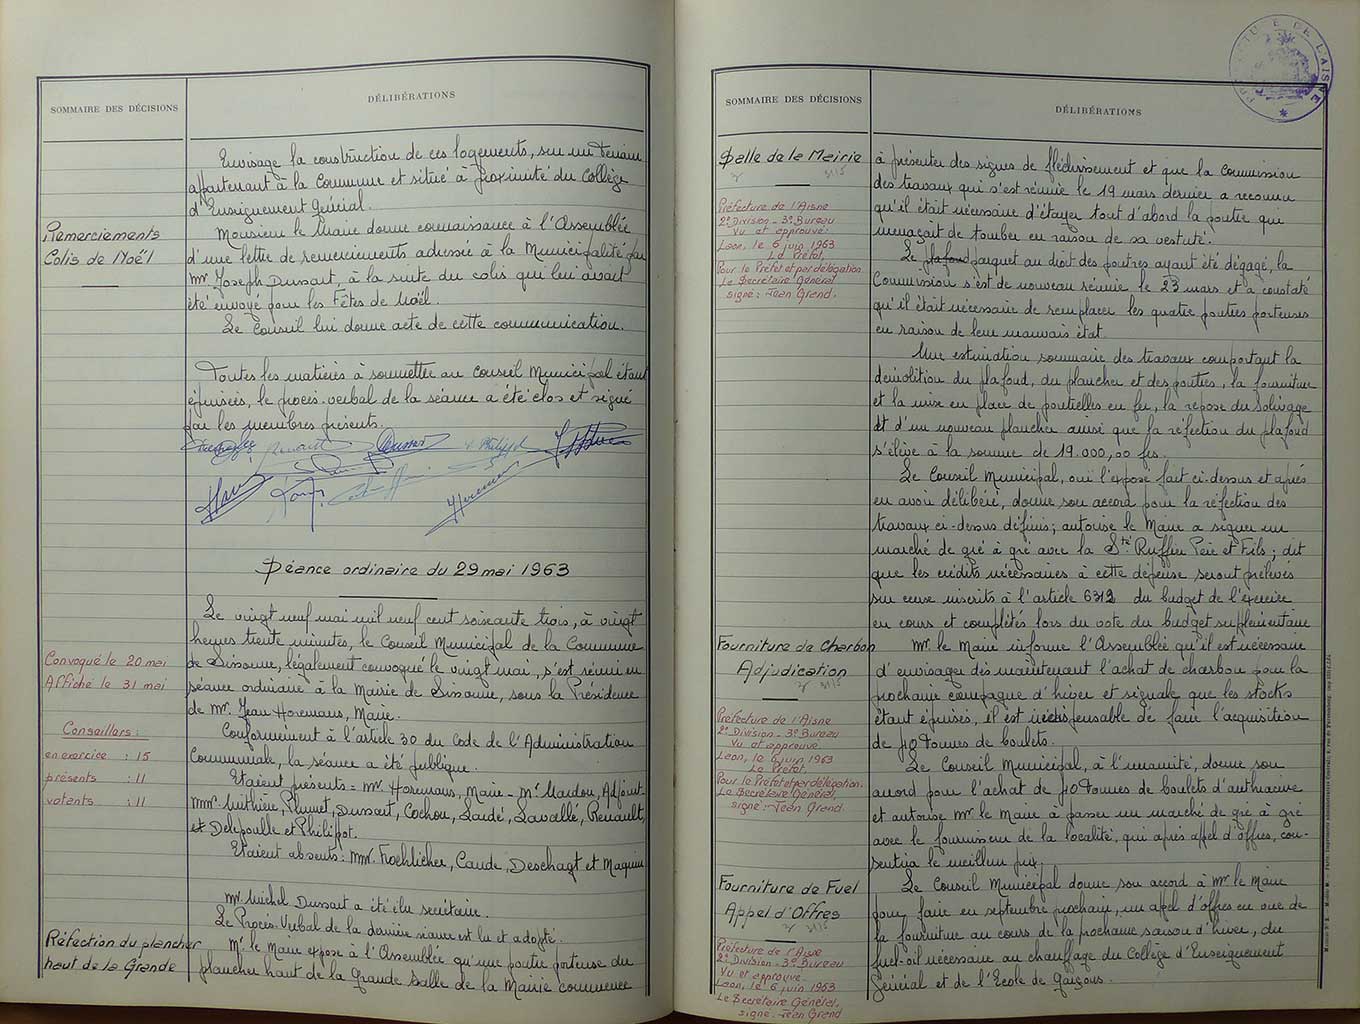 SOMMAIRE DES DÉCISIONS
DÉLIBÉRATIONS
Envisage la construction de ces logements, sur un terrain
appartenant à la Commune et situé à proximité du Collège
d'Enseignement Général.
Remerciements
Colis de Noël
Monsieur le Maire donne connaissance à l'Assemblée
d'une lettre de remerciements adressée à la Municipalité par
Mr Joseph Dussart, à la suite du colis qui lui avait
été envoyé pour les Fêtes de Noël.
Le Conseil lui donne acte de cette communication.
Toutes les matières à soumettre au Conseil Municipal étant
épuisées, le procès-verbal de la séance a été clos et signé
par les membres présents.
Séance ordinaire du 29 mai 1963
Convoqué le 20 mai
Affiché le 31 mai
Conseillers:
en exercice : 15
présents : 11
votants : 11
Le vingt neuf mai mil neuf cent soixante trois, à vingt
heures trente minutes, le Conseil Municipal de la Commune
de Sissonne, légalement convoqué le vingt mai, s'est réuni en
séance ordinaire à la Mairie de Sissonne, sous la Présidence
de Mr. Jean Horemans, Maire.
Conformément à l'article 30 du Code de l'Administration
Communale, la séance a été publique.
Etaient présents = Mr Horemans, Maire - Mr Mardon, Adjoint-
MMr. Mithière, Plumet, Dussart, Cochon, Laudé, Lavallé, Renault,
et Delepoulle et Philipot.
Etaient absents: MMr. Froehlicher, Caude, Deschagt et Maquin
Mr. Michel Dussart a été élu secrétaire.
Le Procès-Verbal de la dernière séance est lu et adopté.
Réfection du plancher
haut de la Grande
Mr. le Maire expose à l'Assemblée qu'une poutre porteuse du
plancher haut de la Grande Salle de la Mairie commence
SOMMAIRE DES DÉCISIONS
DÉLIBÉRATIONS
PRÉFECTURE DE L'AISNE
Salle de la Mairie
31/5
Préfecture de l'Aisne
2e Division - 3e Bureau
Vu et approuvé:
Laon, le 6 juin 1963
Le Préfet,
Pour le Préfet et par délégation
Le Secrétaire Général
signé: Jean Grend.
à présenter des signes de fléchissement et que la commission
des travaux qui s'est réunie le 19 mars dernier a reconnu
qu'il était nécessaire d'étayer tout d'abord la poutre qui
menaçait de tomber en raison de sa vestuté.
Le plafond parquet au droit des poutres ayant été dégagé, la
Commission s'est de nouveau réunie le 23 mars et a constaté
qu'il était nécessaire de remplacer les quatre poutres porteuses
en raison de leur mauvais état.
Une estimation sommaire des travaux comportant la
démolition du plafond, du plancher et des poutres, la fourniture
et la mise en place de poutrelles en fer, la repose du Solivage
et d'un nouveau plancher ainsi que la réfection du plafond
s'élève à la somme de 19.000,00 frs.
Le Conseil Municipal, ouï l'exposé fait ci-dessus et après
en avoir délibéré, donne son accord pour la réfection des
travaux ci-dessus définis; autorise le Maire a signer un
marché de gré à gré avec la Sté Ruffin Père et Fils; dit
que les crédits nécessaires à cette dépense seront prélevés
sur ceux inscrits à l'article 6312 du budget de l'exercice
en cours et complétés lors du vote du budget supplémentaire
Fourniture de Charbon
Adjudication
31/5
Préfecture de l'Aisne
2e Division - 3e Bureau
Vu et approuvé
Laon, le 6 juin 1963
Le Préfet,
Pour le Préfet et par délégation.
Le Secrétaire Général,
signé: Jean Grend.
Mr. le Maire informe l'Assemblée qu'il est nécessaire
d'envisager dès maintenant l'achat de charbon pour la
prochaine campagne d'hiver et signale que les stocks
étant épuisés, il est indispensable de faire l'acquisition
de 70 Tonnes de boulets.
Le Conseil Municipal, à l'unanimité, donne son
accord pour l'achat de 70 Tonnes de boulets d'anthracite
et autorise Mr. le Maire à passer un marché de gré à gré
avec le fournisseur de la localité, qui après appel d'offres, con-
sentira le meilleur prix.
Fourniture de Fuel
Appel d'Offres
31/5
Préfecture de l'Aisne
2e Division - 3e Bureau
Vu et approuvé
Laon, le 6 juin 1963
Le Secrétaire Général,
signé - Jean Grend
Le Conseil Municipal donne son accord à Mr le Maire
pour faire en septembre prochain, un appel d'offres en vue de
la fourniture au cours de la prochaine saison d'hiver, du
fuel-oil nécessaire au chauffage du Collège d'Enseignement
Général et de l'Ecole de Garçons.